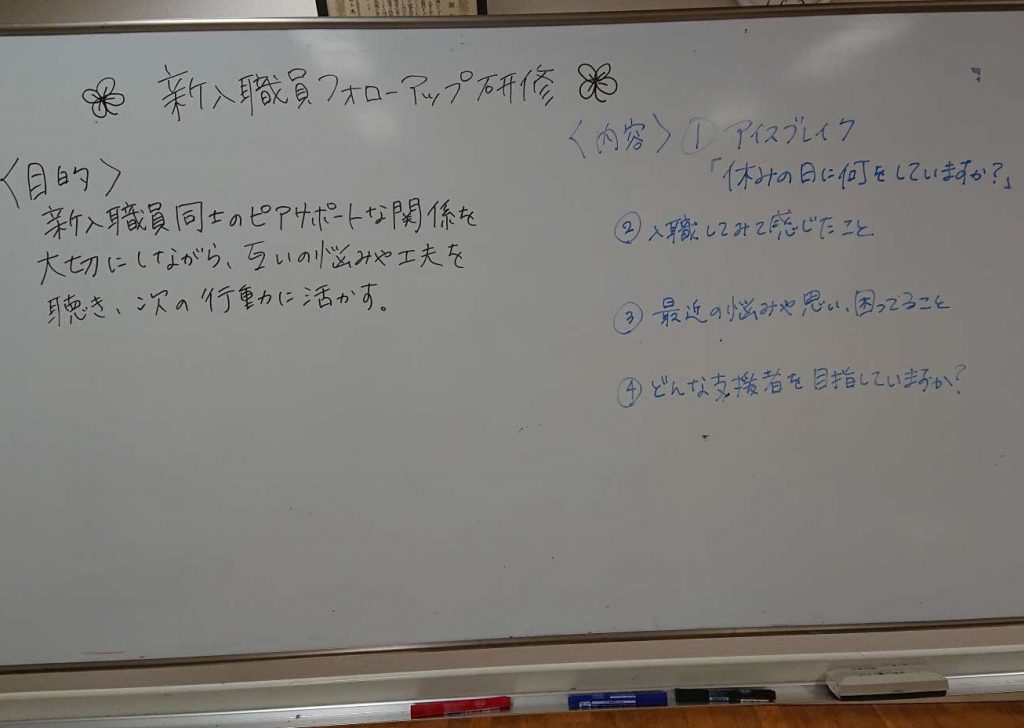 新入職員フォローアップ研修
〈目的〉
新入職員同士のピアサポートな関係を
大切にしながら、互いの悩みや工夫を
聴き、次の行動に活かす。
〈内容〉① アイスブレイク
「休みの日に何をしていますか?」
② 入職してみて感じたこと
③ 最近の悩みや思い、困ってること
④ どんな支援者を目指していますか?